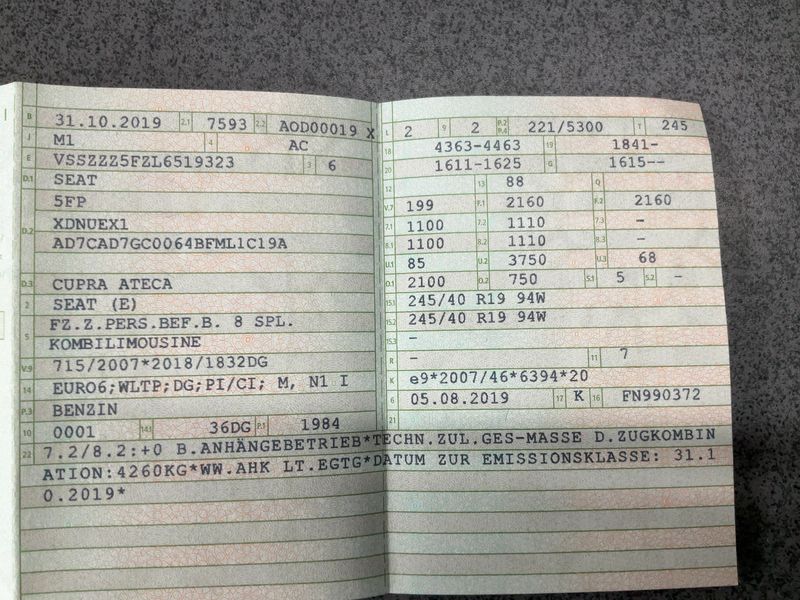 B 31.10.2019 2.1 7593 2.2 AOD00019 X
J M1 4 AC
E VSSZZZ5FZL6519323 3 6
D.1 SEAT
5FP
D.2 XDNUEX1
AD7CAD7GC0064BFML1C19A
D.3 CUPRA ATECA
2 SEAT (E)
5 FZ.Z.PERS.BEF.B. 8 SPL.
KOMBILIMOUSINE
V.9 715/2007*2018/1832DG
14 EURO6;WLTP;DG;PI/CI; M, N1 I
P.3 BENZIN
10 0001 14.1 36DG P.1 1984
L 2 9 2 P.2 P.4 221/5300 T 245
18 4363-4463 19 1841-
20 1611-1625 G 1615--
12 13 88 Q
V.7 199 F.1 2160 F.2 2160
7.1 1100 7.2 1110 7.3 -
8.1 1100 8.2 1110 8.3 -
U.1 85 U.2 3750 U.3 68
O.1 2100 O.2 750 S.1 5 S.2 -
15.1 245/40 R19 94W
15.2 245/40 R19 94W
15.3 -
R - 11 7
K e9*2007/46*6394*20
6 05.08.2019 17 K 16 FN990372
21
22 7.2/8.2:+0 B.ANHÄNGEBETRIEB*TECHN.ZUL.GES-MASSE D.ZUGKOMBIN
ATION:4260KG*WW.AHK LT.EGTG*DATUM ZUR EMISSIONSKLASSE: 31.1
0.2019*